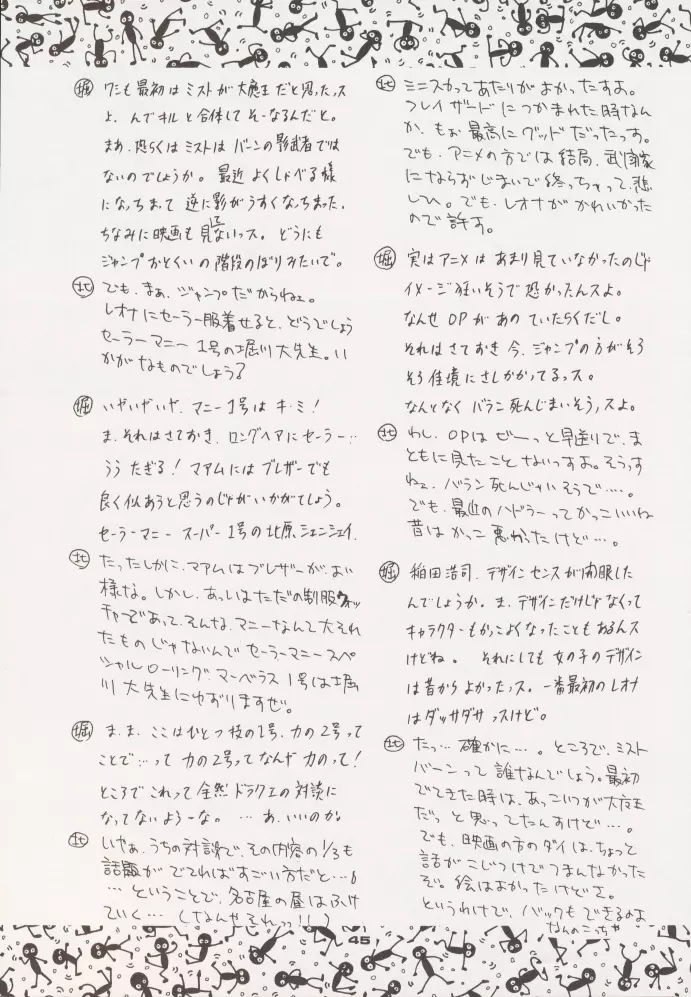 北 ミニスカってあたりがよかったすよ。
フレイザードにつかまれた時なん
か、もぉ最高にグッドだったっす。
でも、アニメの方では結局、武闘家
にならずじまいで終っちゃって、悲
しひ。でも、レオナがかわいかった
ので許す。
堀 実はアニメはあまり見ていなかったのじゃ
イメージ狂いそうで恐かったんスよ。
なんせOPがあのていたらくだし。
それはさておき今、ジャンプの方がそろ
そろ佳境にさしかかってるっス。
なんとなくバラン死んじまいそうっスよ。
北 わし、OPはぜーっと早送りで、ま
ともに見たことないっすよ。そうっす
ねェ、バラン死んじゃいそうで…。
でも、最近のハドラーってかっこいいね
昔はかっこ悪かったけど…。
堀 稲田浩司、デザインセンスが開眼した
んでしょうか。ま、デザインだけじゃなくって
キャラクターもかっこよくなったこともあるんス
けどね。それにしても女の子のデザイン
は昔からよかったっス。一番最初のレオナ
はダッサダサっスけど。
北 たっ…確かに…。ところで、ミスト
バーンって誰なんでしょう。最初
でてきた時は、あっこいつが大魔王
だっと思ってたんすけど…。
でも、映画の方のダイは、ちょっと
話がこじつけでつまんなかった
ぞ。絵はよかったけどさ。
というわけで、バックもできるのよ
なんのこっちゃ
堀 ワシも最初はミストが大魔王だと思ったっス
よ、んでキルと合体してそーなるんだと。
まあ、恐らくはミストはバーンの影武者では
ないのでしょうか。最近よくしゃべる様
になっちまって逆に影がうすくなっちまった、
ちなみに映画も見てないっス。どうにも
ジャンプおとくいの階段のぼりみたいで。
北 でも、まぁ、ジャンプだからねェ。
レオナにセーラー服着せると、どうでしょう
セーラーマニー1号の堀川大先生。い
かがなものでしょう？
堀 いやいやいや、マニー1号はキ・ミ！
ま、それはさておき、ロングヘアにセーラー…
うう たぎる！マアムにはブレザーでも
良く似あうと思うのじゃがいかがでしょう。
セーラーマニー スーパー1号の北原シェンシェイ、
北 たったしかに、マアムはブレザーが、よい
様な。しかし、あっしはただの制服ウォッ
チャーであって、そんな、マニーなんて大それ
たものじゃないんでセーラーマニースペ
シャルローリングマーベラス1号は堀
川大先生にゆずりますぜ。
堀 ま、ま、ここはひとつ技の1号、力の2号って
ことで…って力の2号ってなんや力のって！
ところでこれって全然ドラクエの対談に
なってないよーな。…あ、いいのか。
北 いやぁ、うちの対談で、その内容の1/3も
話題がでてればすごい方だと…。
…ということで、名古屋の昼はふけ
ていく…（なんやそれっ!!）
45